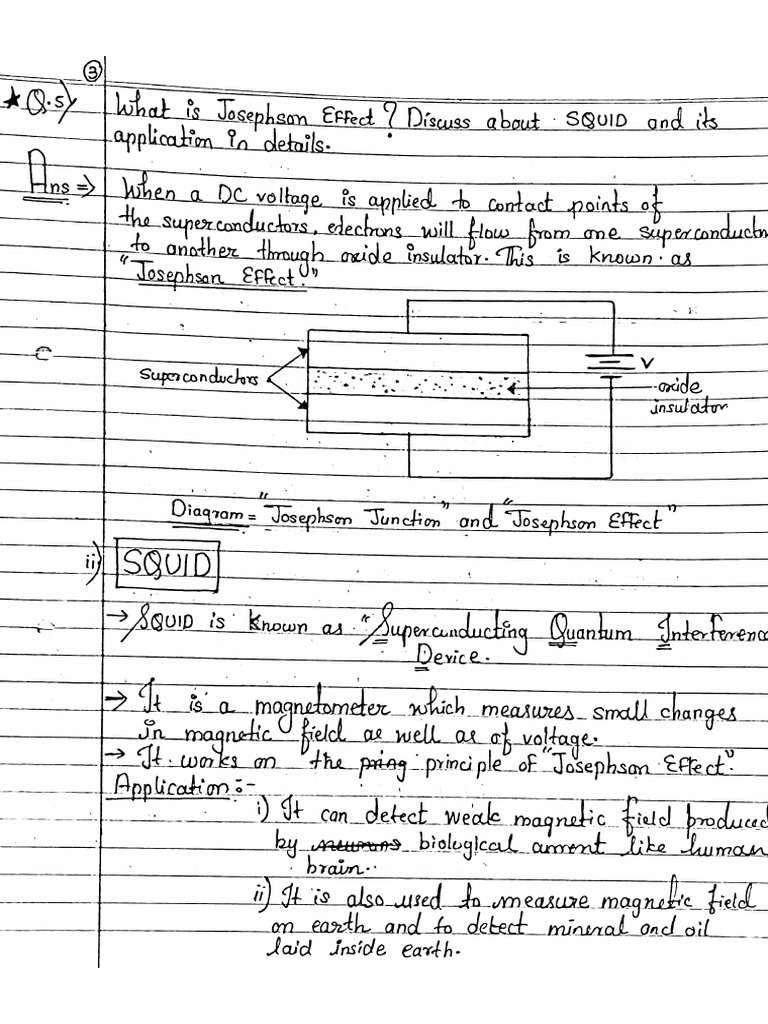 ③
★ Q.5) What is Josephson Effect? Discuss about SQUID and its
application in details.
Ans => When a DC voltage is applied to contact points of
the superconductors, electrons will flow from one superconductor
to another through oxide insulator. This is known as
"Josephson Effect."
Superconductors
V
oxide
insulator
Diagram = "Josephson Junction" and "Josephson Effect"
ii) SQUID
→ SQUID is known as "Superconducting Quantum Interference
Device.
→ It is a magnetometer which measures small changes
in magnetic field as well as of voltage.
→ It works on the principle of "Josephson Effect".
Application :-
i) It can detect weak magnetic field produced
by biological like human
brain.
ii) It is also used to measure magnetic field
on earth and to detect mineral and oil
laid inside earth.